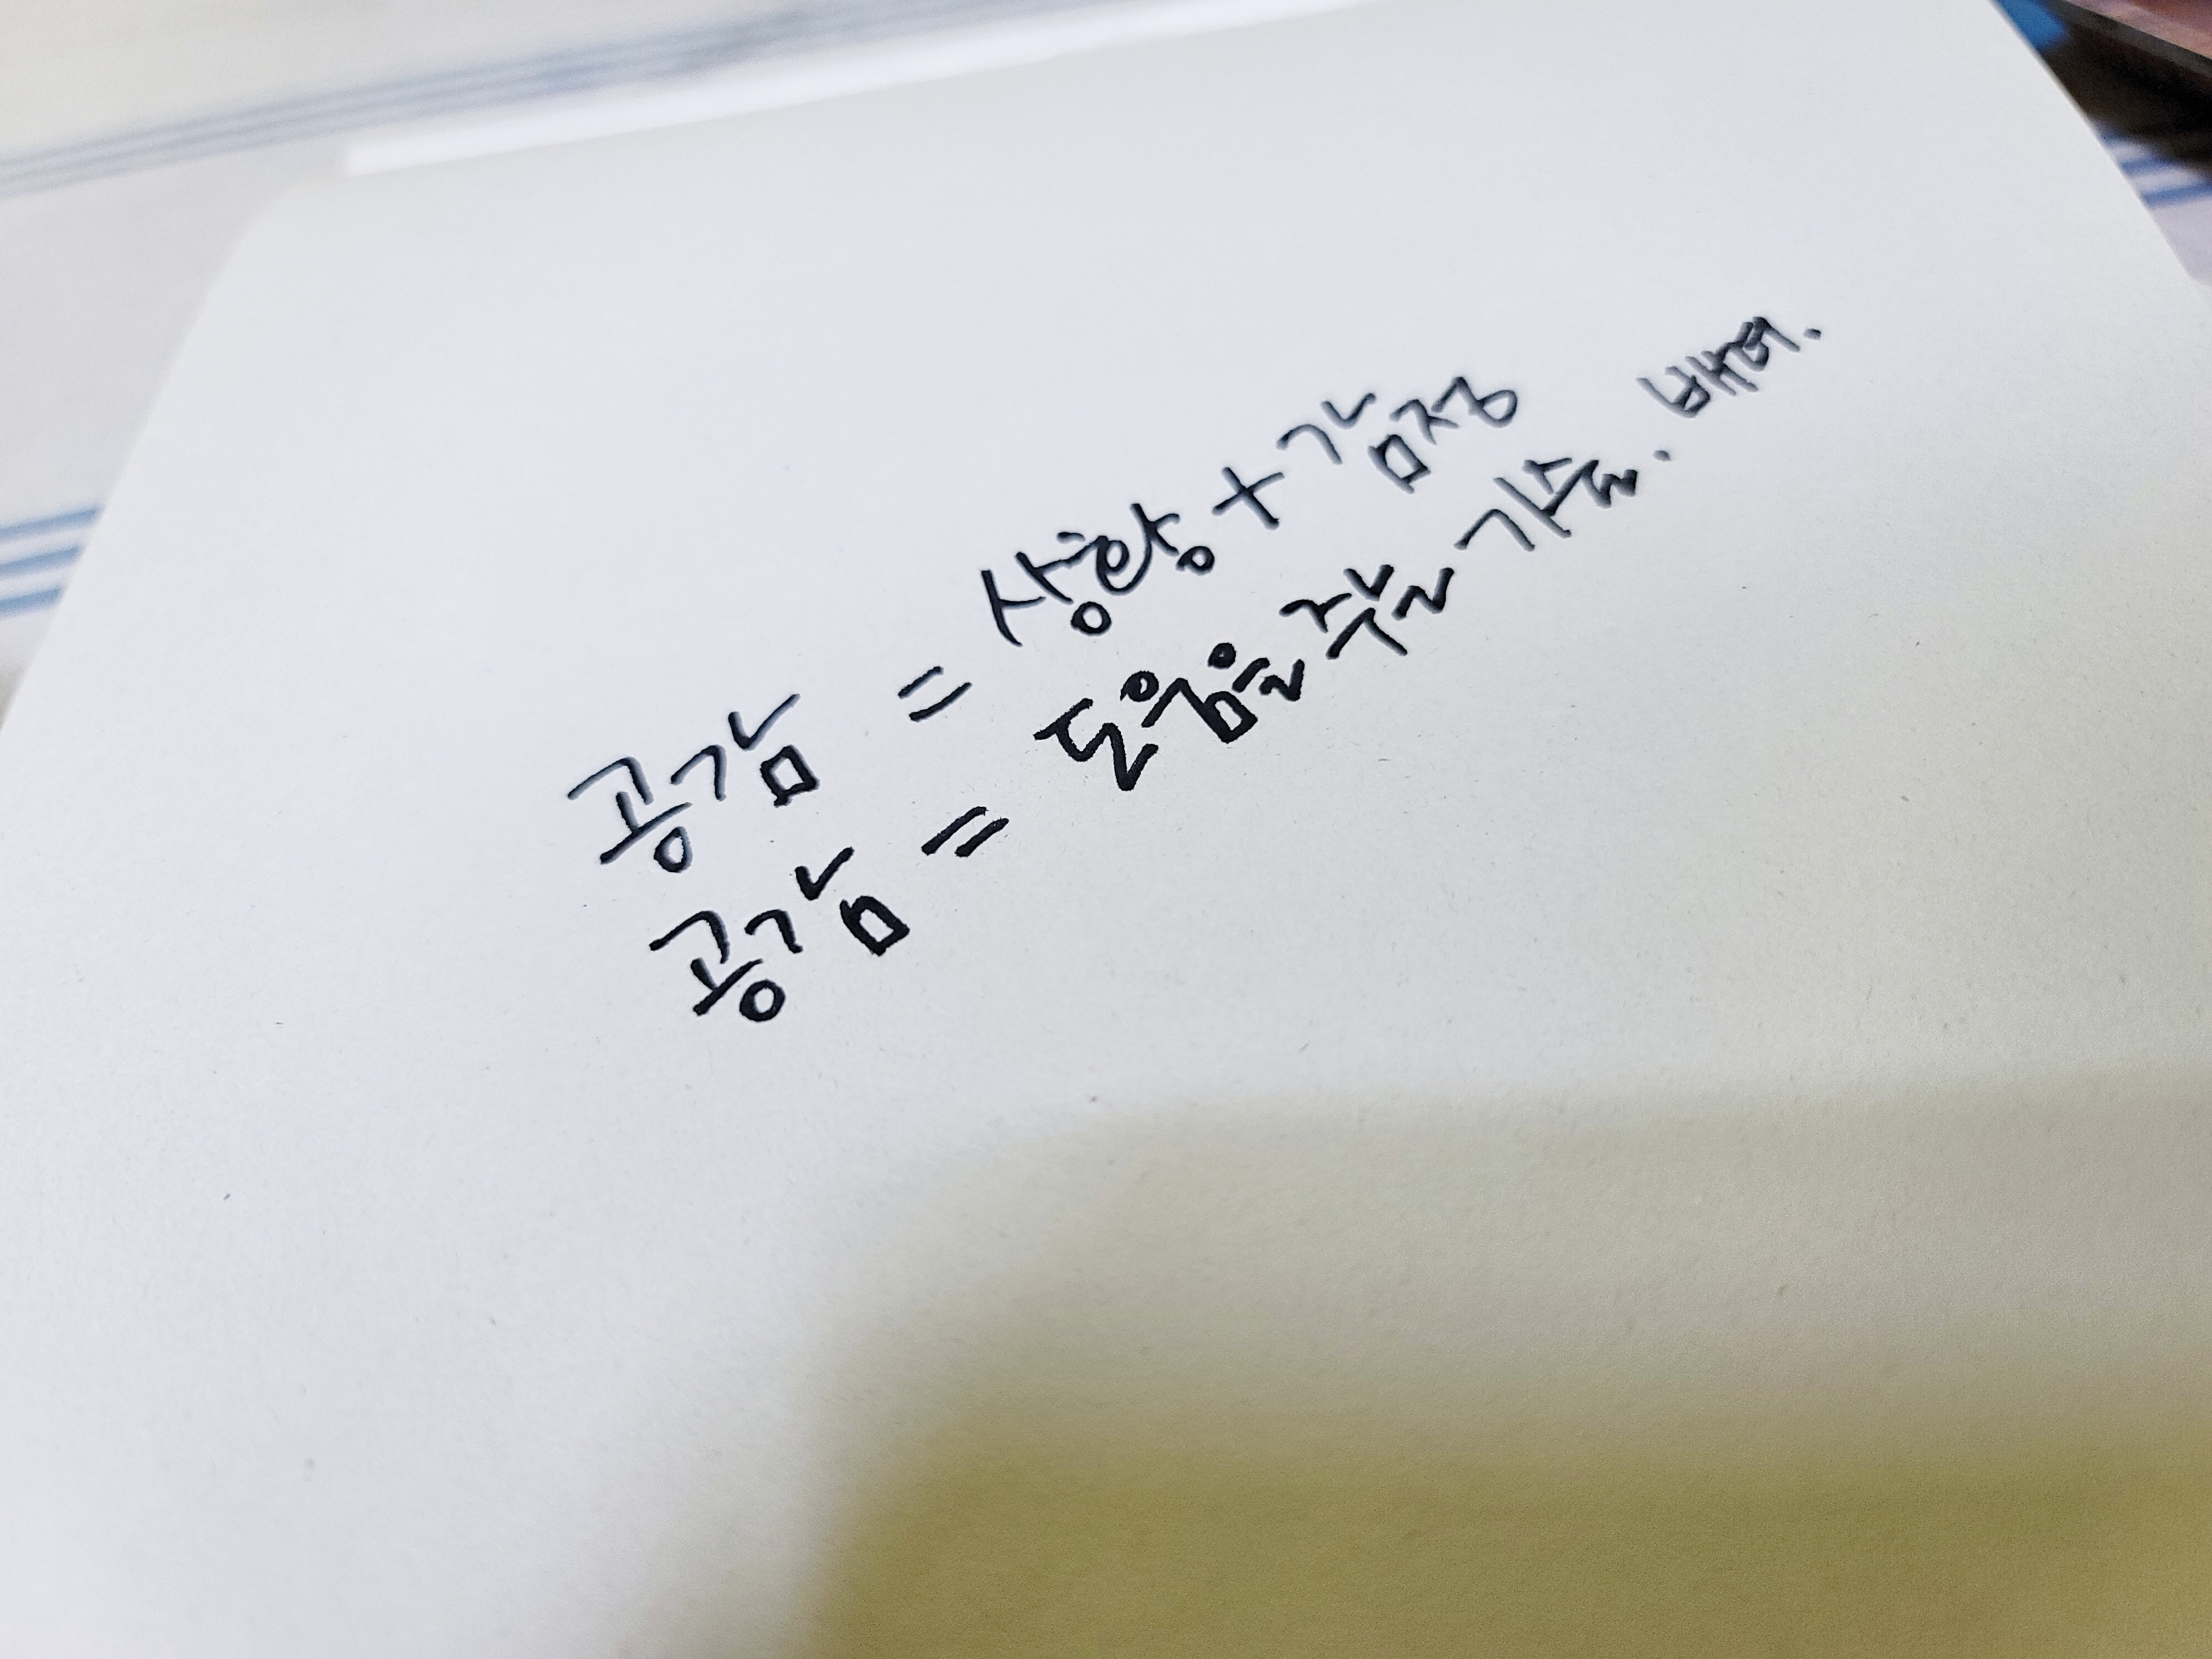 공감 = 상황 + 감정
공감 = 도움을 주는 기술. 배려.